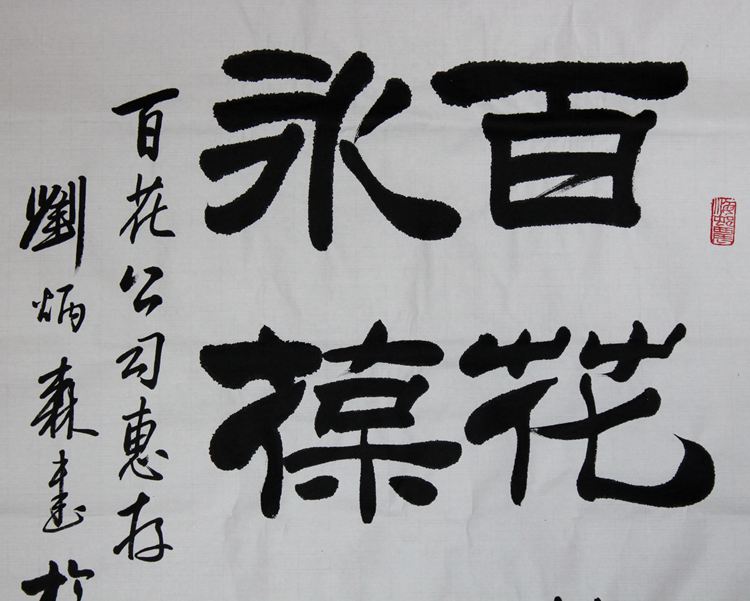 百花
永葆
百花公司惠存
劉炳森書於